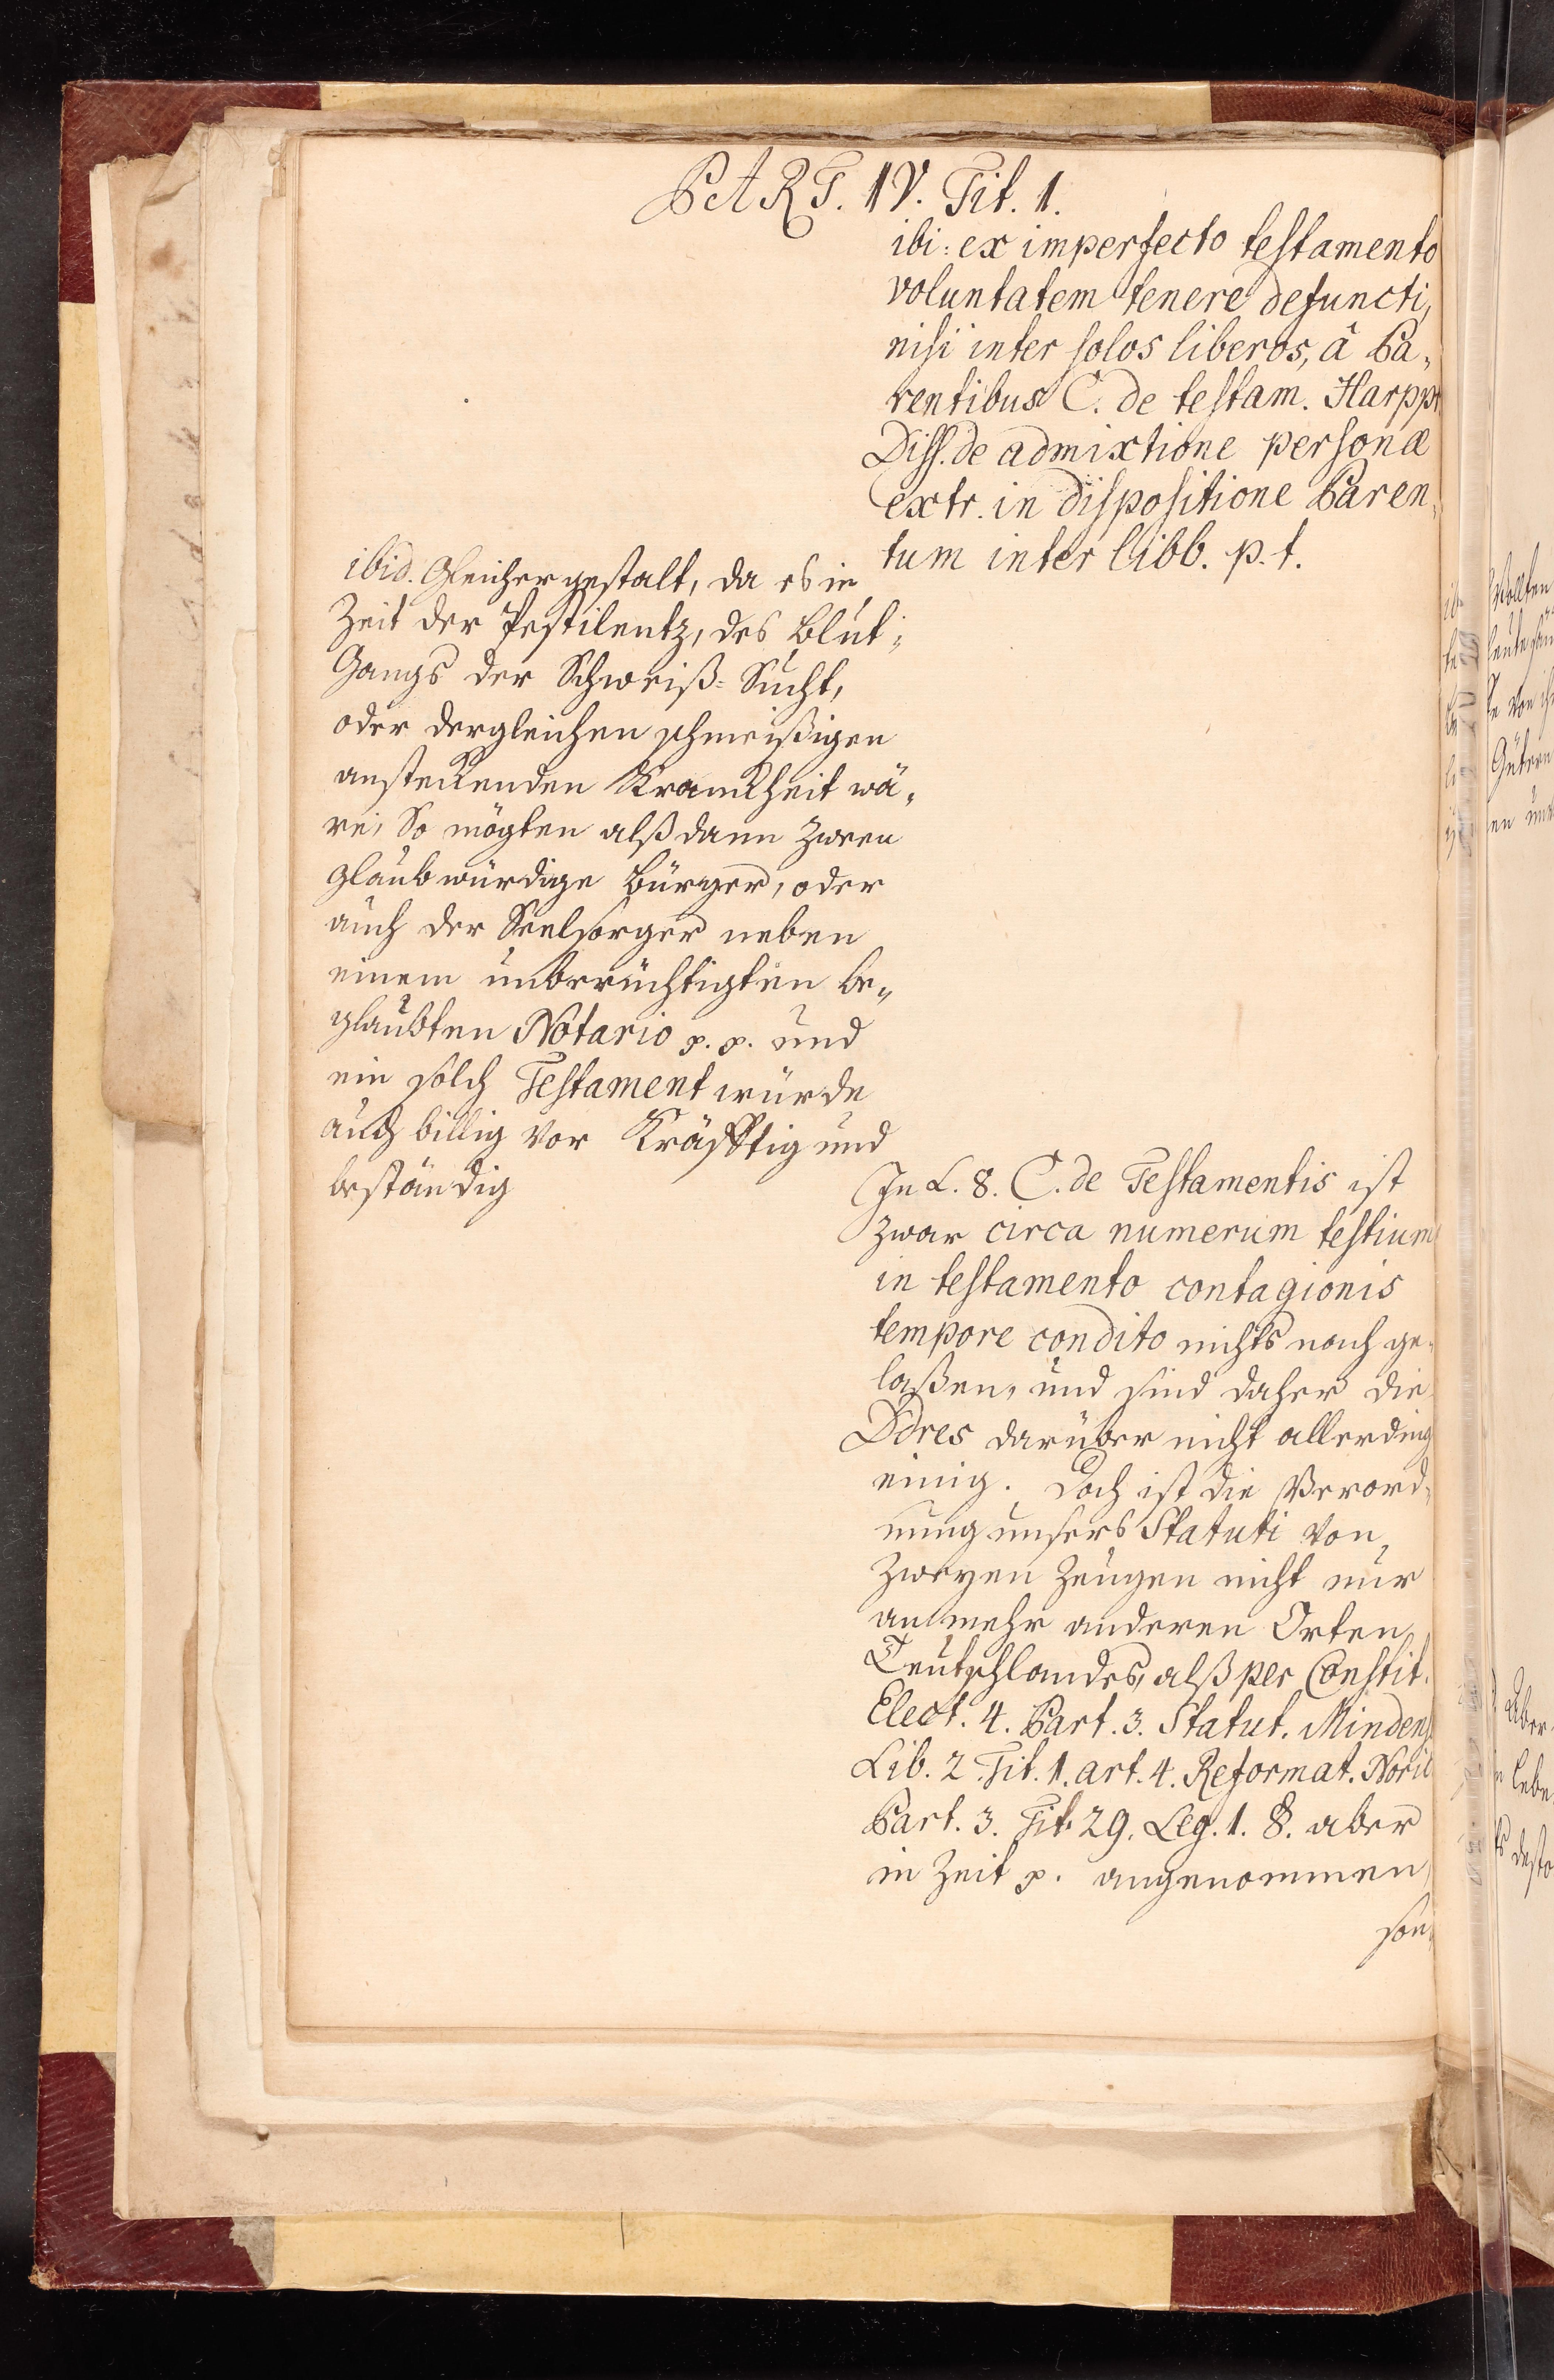 PART. IV. Tit. 1.
ibi: ex imperfecto testamento
voluntatem tenere defuncti,
nisi inter solos liberos, â Pa„
rentibus C. de testam. Harppr
Diss. de admixtione personæ
extr. in dispositione Paren„
tum inter libb. p. t.
ibid. Gleicher gestalt, da es in
Zeit der Pestilentz, des Blut„
Gangs der Schweiß-Sucht,
oder dergleichen schmeißigen
ansteckenden Kranckheit wä„
re, So mögten alß dann zween
glaubwürdige Bürger, oder
auch der Seelsorger neben
einem unberüchtigten be„
glaubten Notario p. p. und
ein solch Testament würde
auch billig vor Kräfftig und
beständig
In L. 8. C. de Testamentis ist
zwar circa numerum testium
in testamento contagionis
tempore condito nichts nach ge„
laßen, und sind daher die
Ddres darüber nicht allerding
einig. Doch ist die Verord„
nung unsers Statuti von
zweyen Zeugen nicht nur
an mehr anderen Orten
Teutschlandes, alß per Constit.
Elect. 4. Part. 3. Statut. Mindens
Lib. 2. Tit. 1. art. 4. Reformat. Noric
Part. 3. Tit. 29. Leg. 1. §. aber
in Zeit p. angenommen,
son„